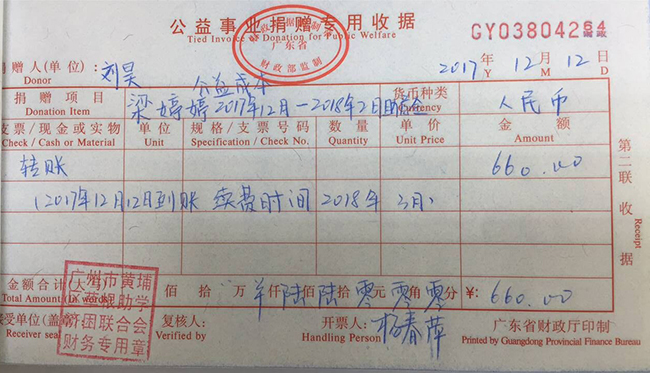 公益事业捐赠专用收据 GY03804264
Tied Invoice of Donation for Public Welfare 财政
广东省
财政部监制
捐赠人(单位): 刘昊 2017年 12月 12日
Donor Y M D
公益成本
捐赠项目 梁婷婷2017年12月—2018年2月助学金 货币种类 人民币
Donation Item Currency
支票/现金或实物 单位 规格/支票号码 数量 单价 金额
Check / Cash or Material Unit Specification / Check No. Quantity Unit Price Amount
转账 660.00
(2017年12月12日到账 续费时间 2018年 3月)
第二联 收据 Receipt
金额合计(大写) 佰 拾 万 羊 陆佰 陆拾 零元 零角 零分 ¥: 660.00
Total Amount (In words)
接受单位(盖章) 复核人: 开票人: 杨春萍 广东省财政厅印制
Receiver seal Verified by Handling Person Printed by Guangdong Provincial Finance Bureau
广州市黄埔
区萝根助学
济困联合会
财务专用章